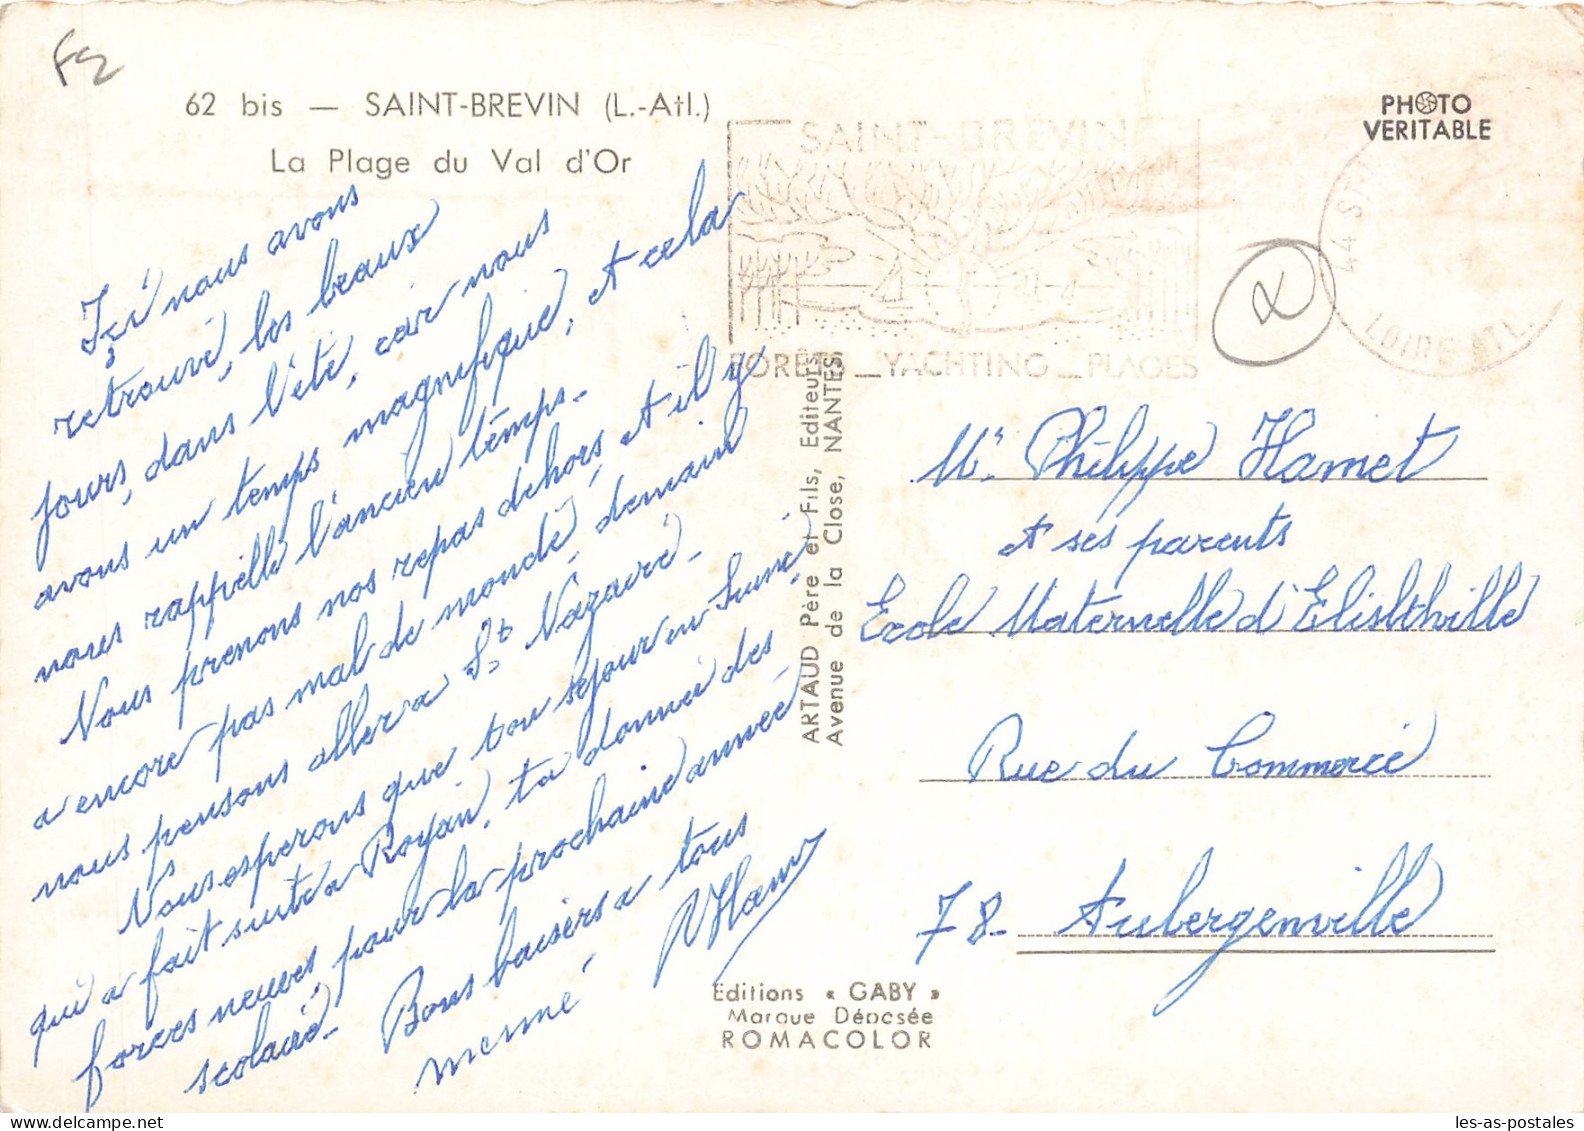 F2
62 bis — SAINT-BREVIN (L.-Atl.)
La Plage du Val d'Or
PHOTO
VERITABLE
SAINT-BREVIN
FORÊTS _ YACHTING _ PLAGES
44 ST
LOIRE ATL.
Içi nous avons
retrouvé, les beaux
jours, dans l'été, car nous
avons un temps magnifique, et cela
nous rappelle l'ancien temps.
Nous prenons nos repas dehors, et il y
a encore pas mal de monde, demain
nous pensons aller a St Nazaire.
Nous esperons que ton sejour en
qui a fait suite a Royan, ta donner des
forces neuves, pour la prochaine année
scolaire. Bons baisers a tous
meme
ARTAUD Père et Fils, Editeurs
Avenue de la Close, NANTES
Mr Philippe Hamet
et ses parents
Ecole Maternelle d'Elisbthville
Rue du Commerce
78 - Aubergenville
Editions « GABY »
Marque Déposée
ROMACOLOR
les-as-postales